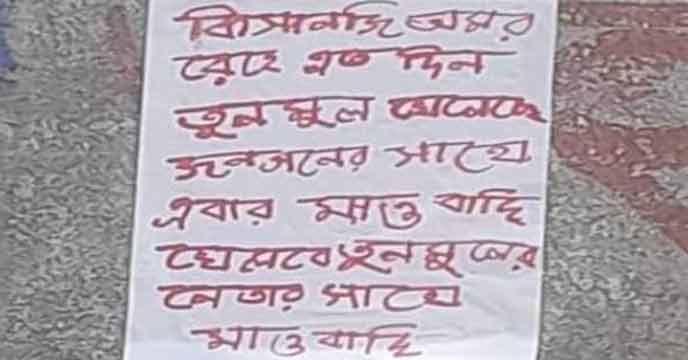 কিসানজি অমর
রহে এত দিন
তৃনমুল খেলেছে
জনগনের সাথে
এবার মাও বাদি
খেলবে তৃনমুলের
নেতার সাথে
মাওবাদি